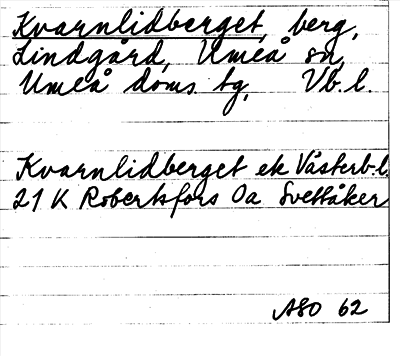 Kvarnlidberget, berg,
Lindgård, Umeå sn,
Umeå doms. tg, Vb. l.
Kvarnlidberget ek Västerb. l.
21 K Robertsfors 0a Svettåker
ASO 62